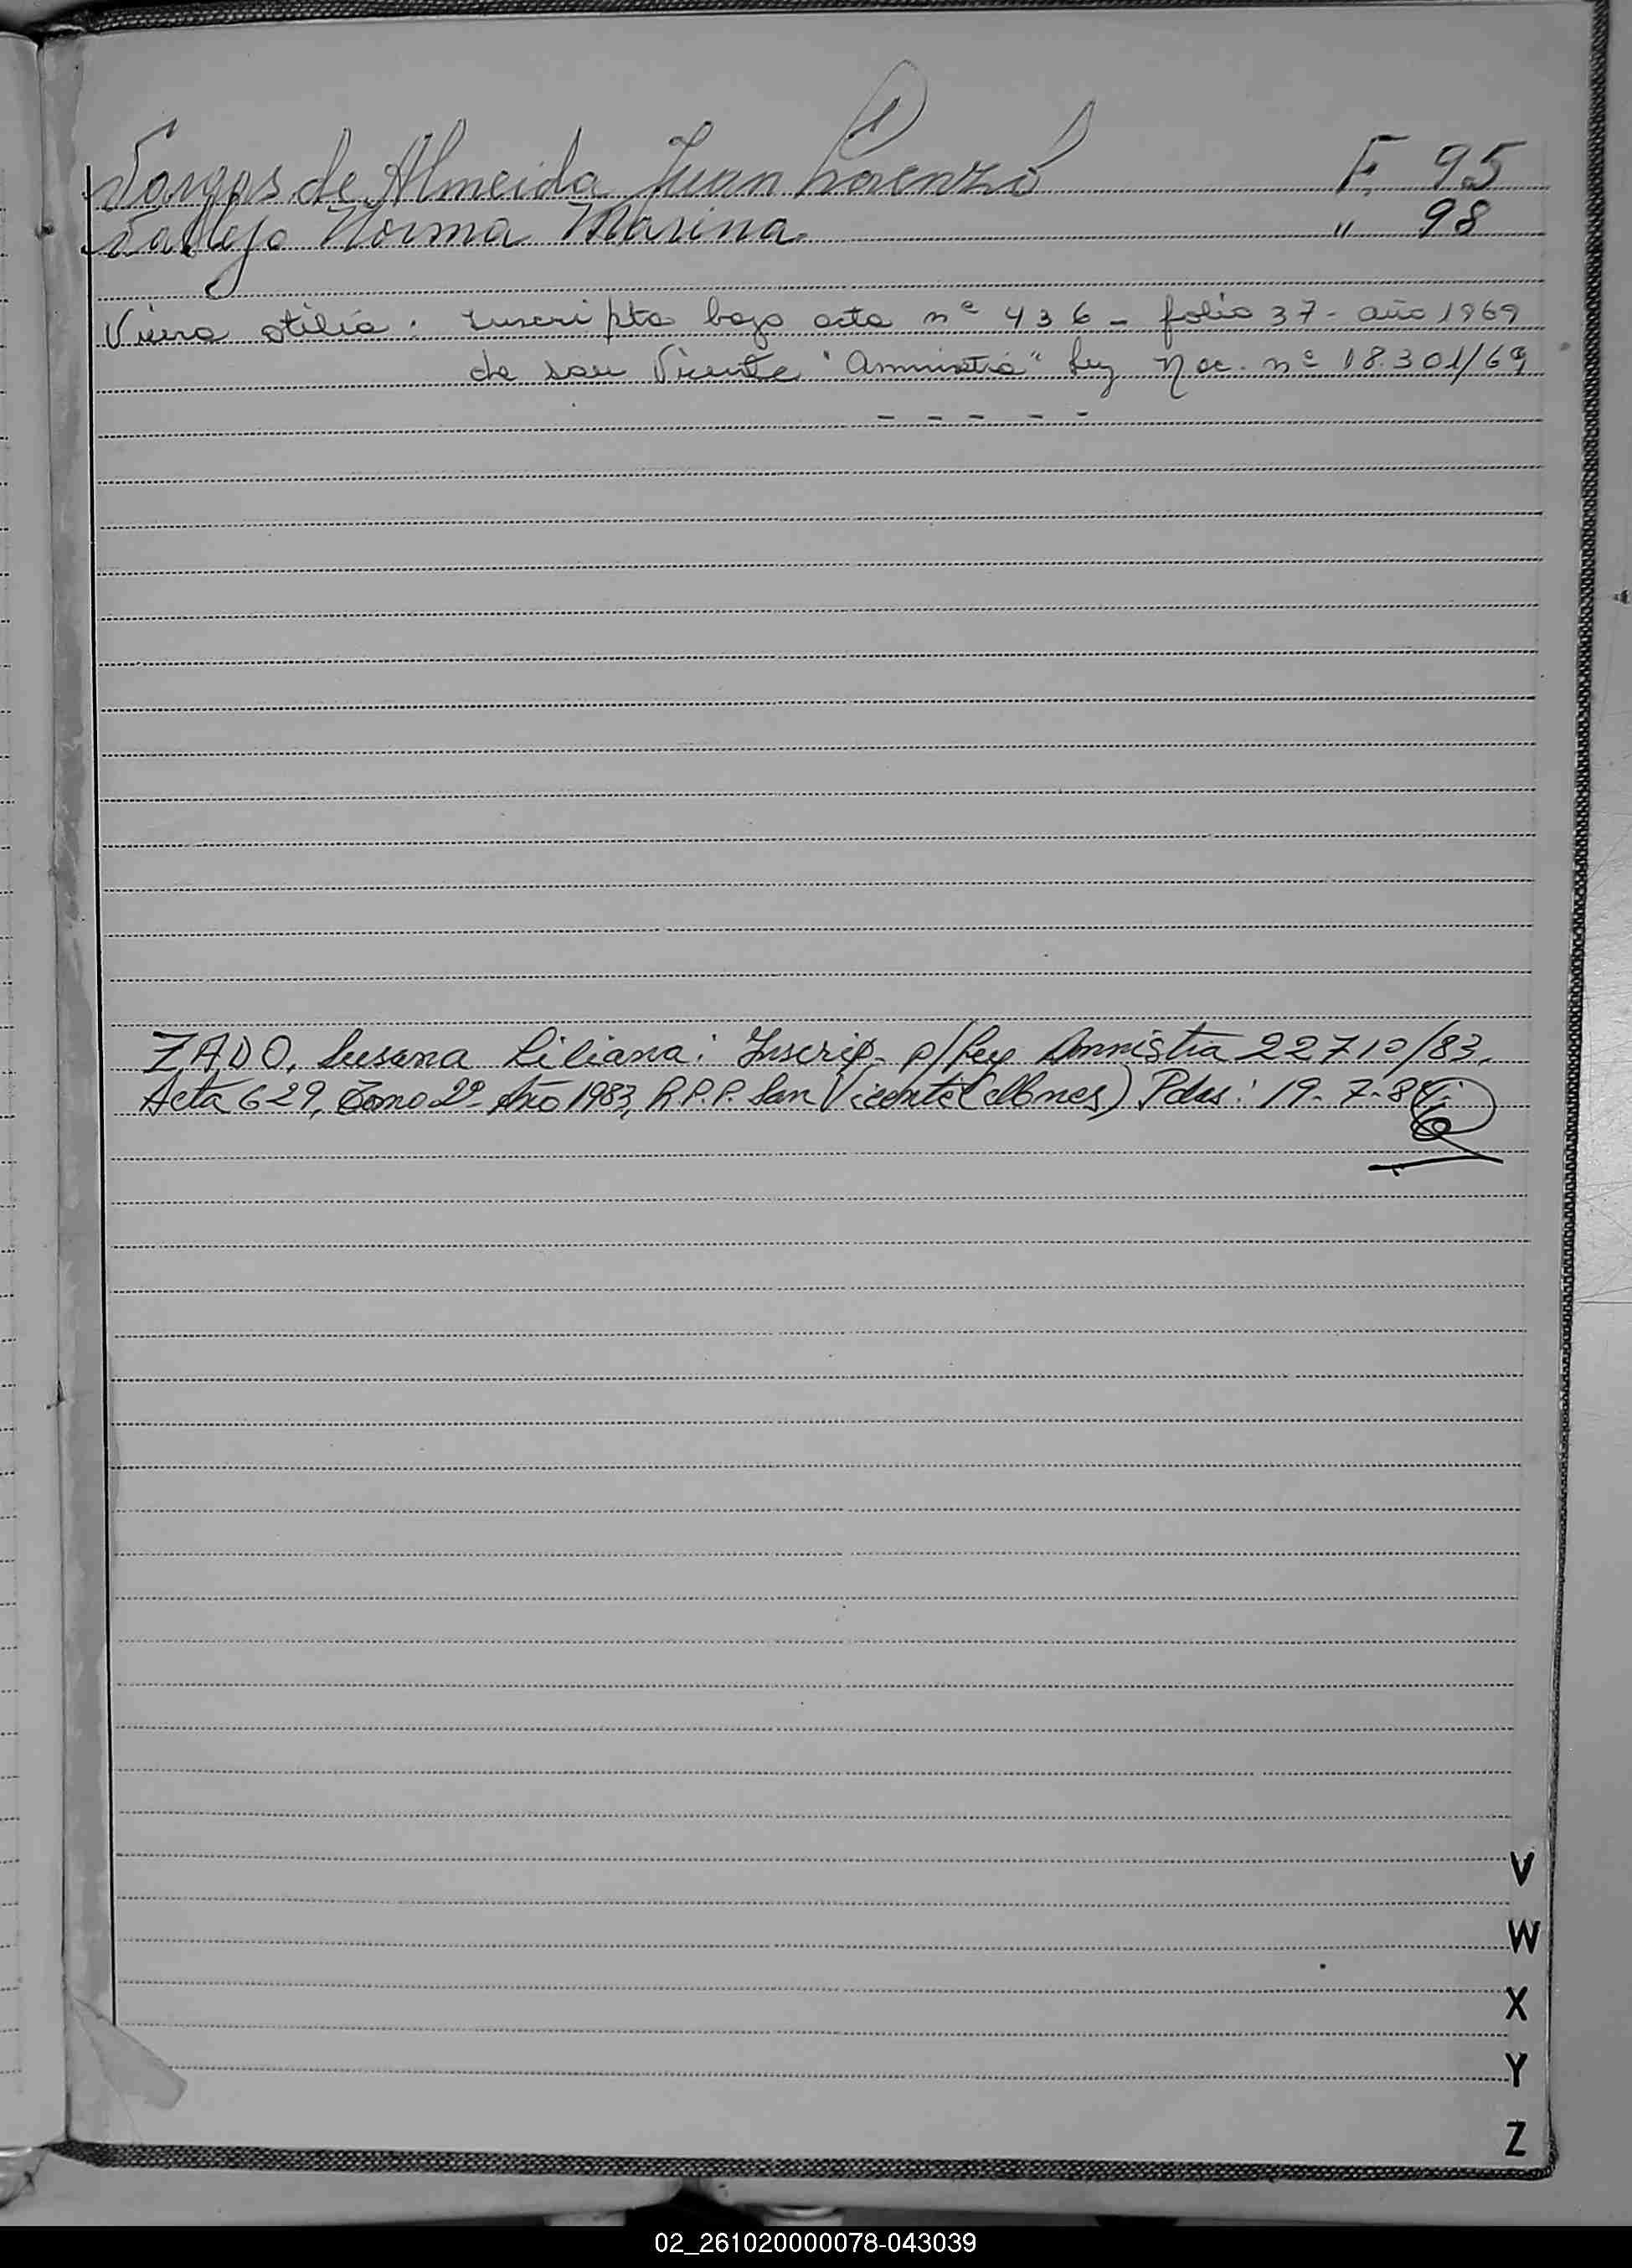 Vargas de Almeida Juan Lorenzo F. 95
Vallejo Norma Marina " 98
Viera Otilia: Inscripta bajo acta nº 436 - folio 37 - año 1969
de San Vicente "Amnistia" Ley Nac. nº 18.301/69
- - - - -
ZADO, Susana Liliana: Inscrip. p/Ley Amnistia 22710/83.
Acta 629, Tomo 2º Año 1983, R.P.P. San Vicente (Mnes) Pdas: 19-7-84
V
W
X
Y
Z
02_261020000078-043039